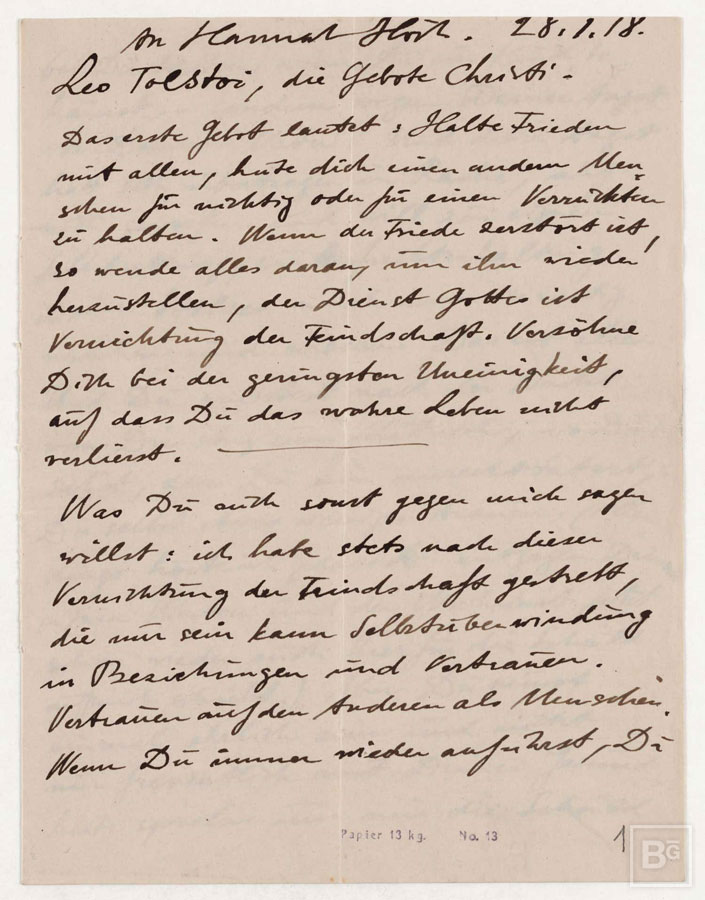 An Hannah Höch. 28.1.18.
Leo Tolstoi, die Gebote Christi.
Das erste Gebot lautet: Halte Frieden
mit allen, hüte dich einen andern Men-
schen für nichtig oder für einen Verrückten
zu halten. Wenn der Friede zerstört ist,
so wende alles daran, um ihn wieder
herzustellen, der Dienst Gottes ist
Vernichtung der Feindschaft. Versöhne
Dich bei der geringsten Uneinigkeit,
auf dass Du das wahre Leben nicht
verlierst.
Was Du auch sonst gegen mich sagen
willst: ich habe stets nach dieser
Vernichtung der Feindschaft gestrebt,
die nur sein kann Selbstüberwindung
in Beziehungen und Vertrauen.
Vertrauen auf den Anderen als Menschen.
Wenn Du immer wieder anführst, Du
Papier 13 kg. No. 13
1
BG